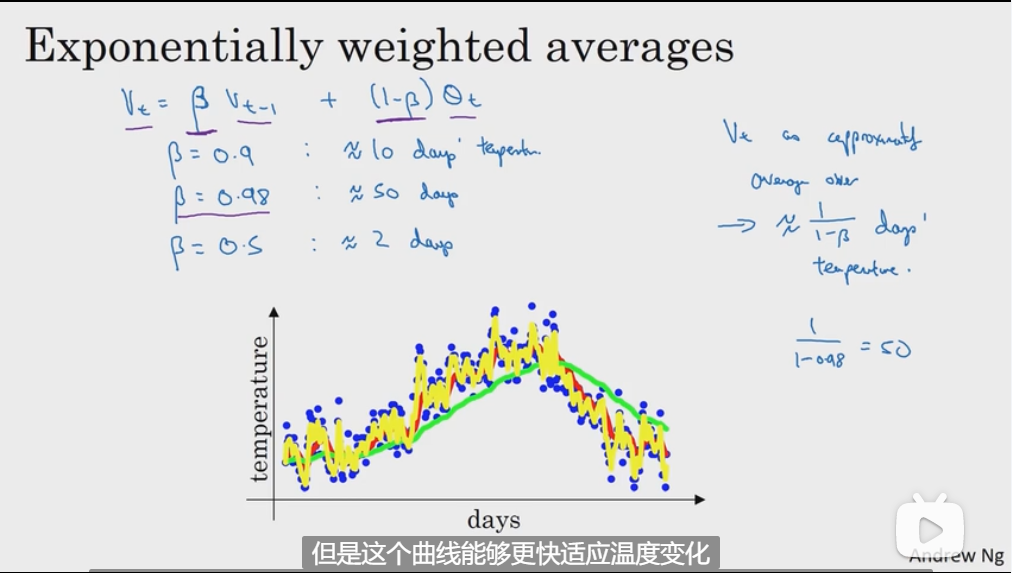 Exponentially weighted averages
Vₜ = β Vₜ₋₁ + (1-β) θₜ
β = 0.9 : ≈ 10 days' temperature.
β = 0.98 : ≈ 50 days
β = 0.5 : ≈ 2 days
Vₜ as approximately
average over
→ ≈ 1/(1-β) days'
temperature.
1/(1-0.98) = 50
temperature
days
但是这个曲线能够更快适应温度变化
Andrew Ng